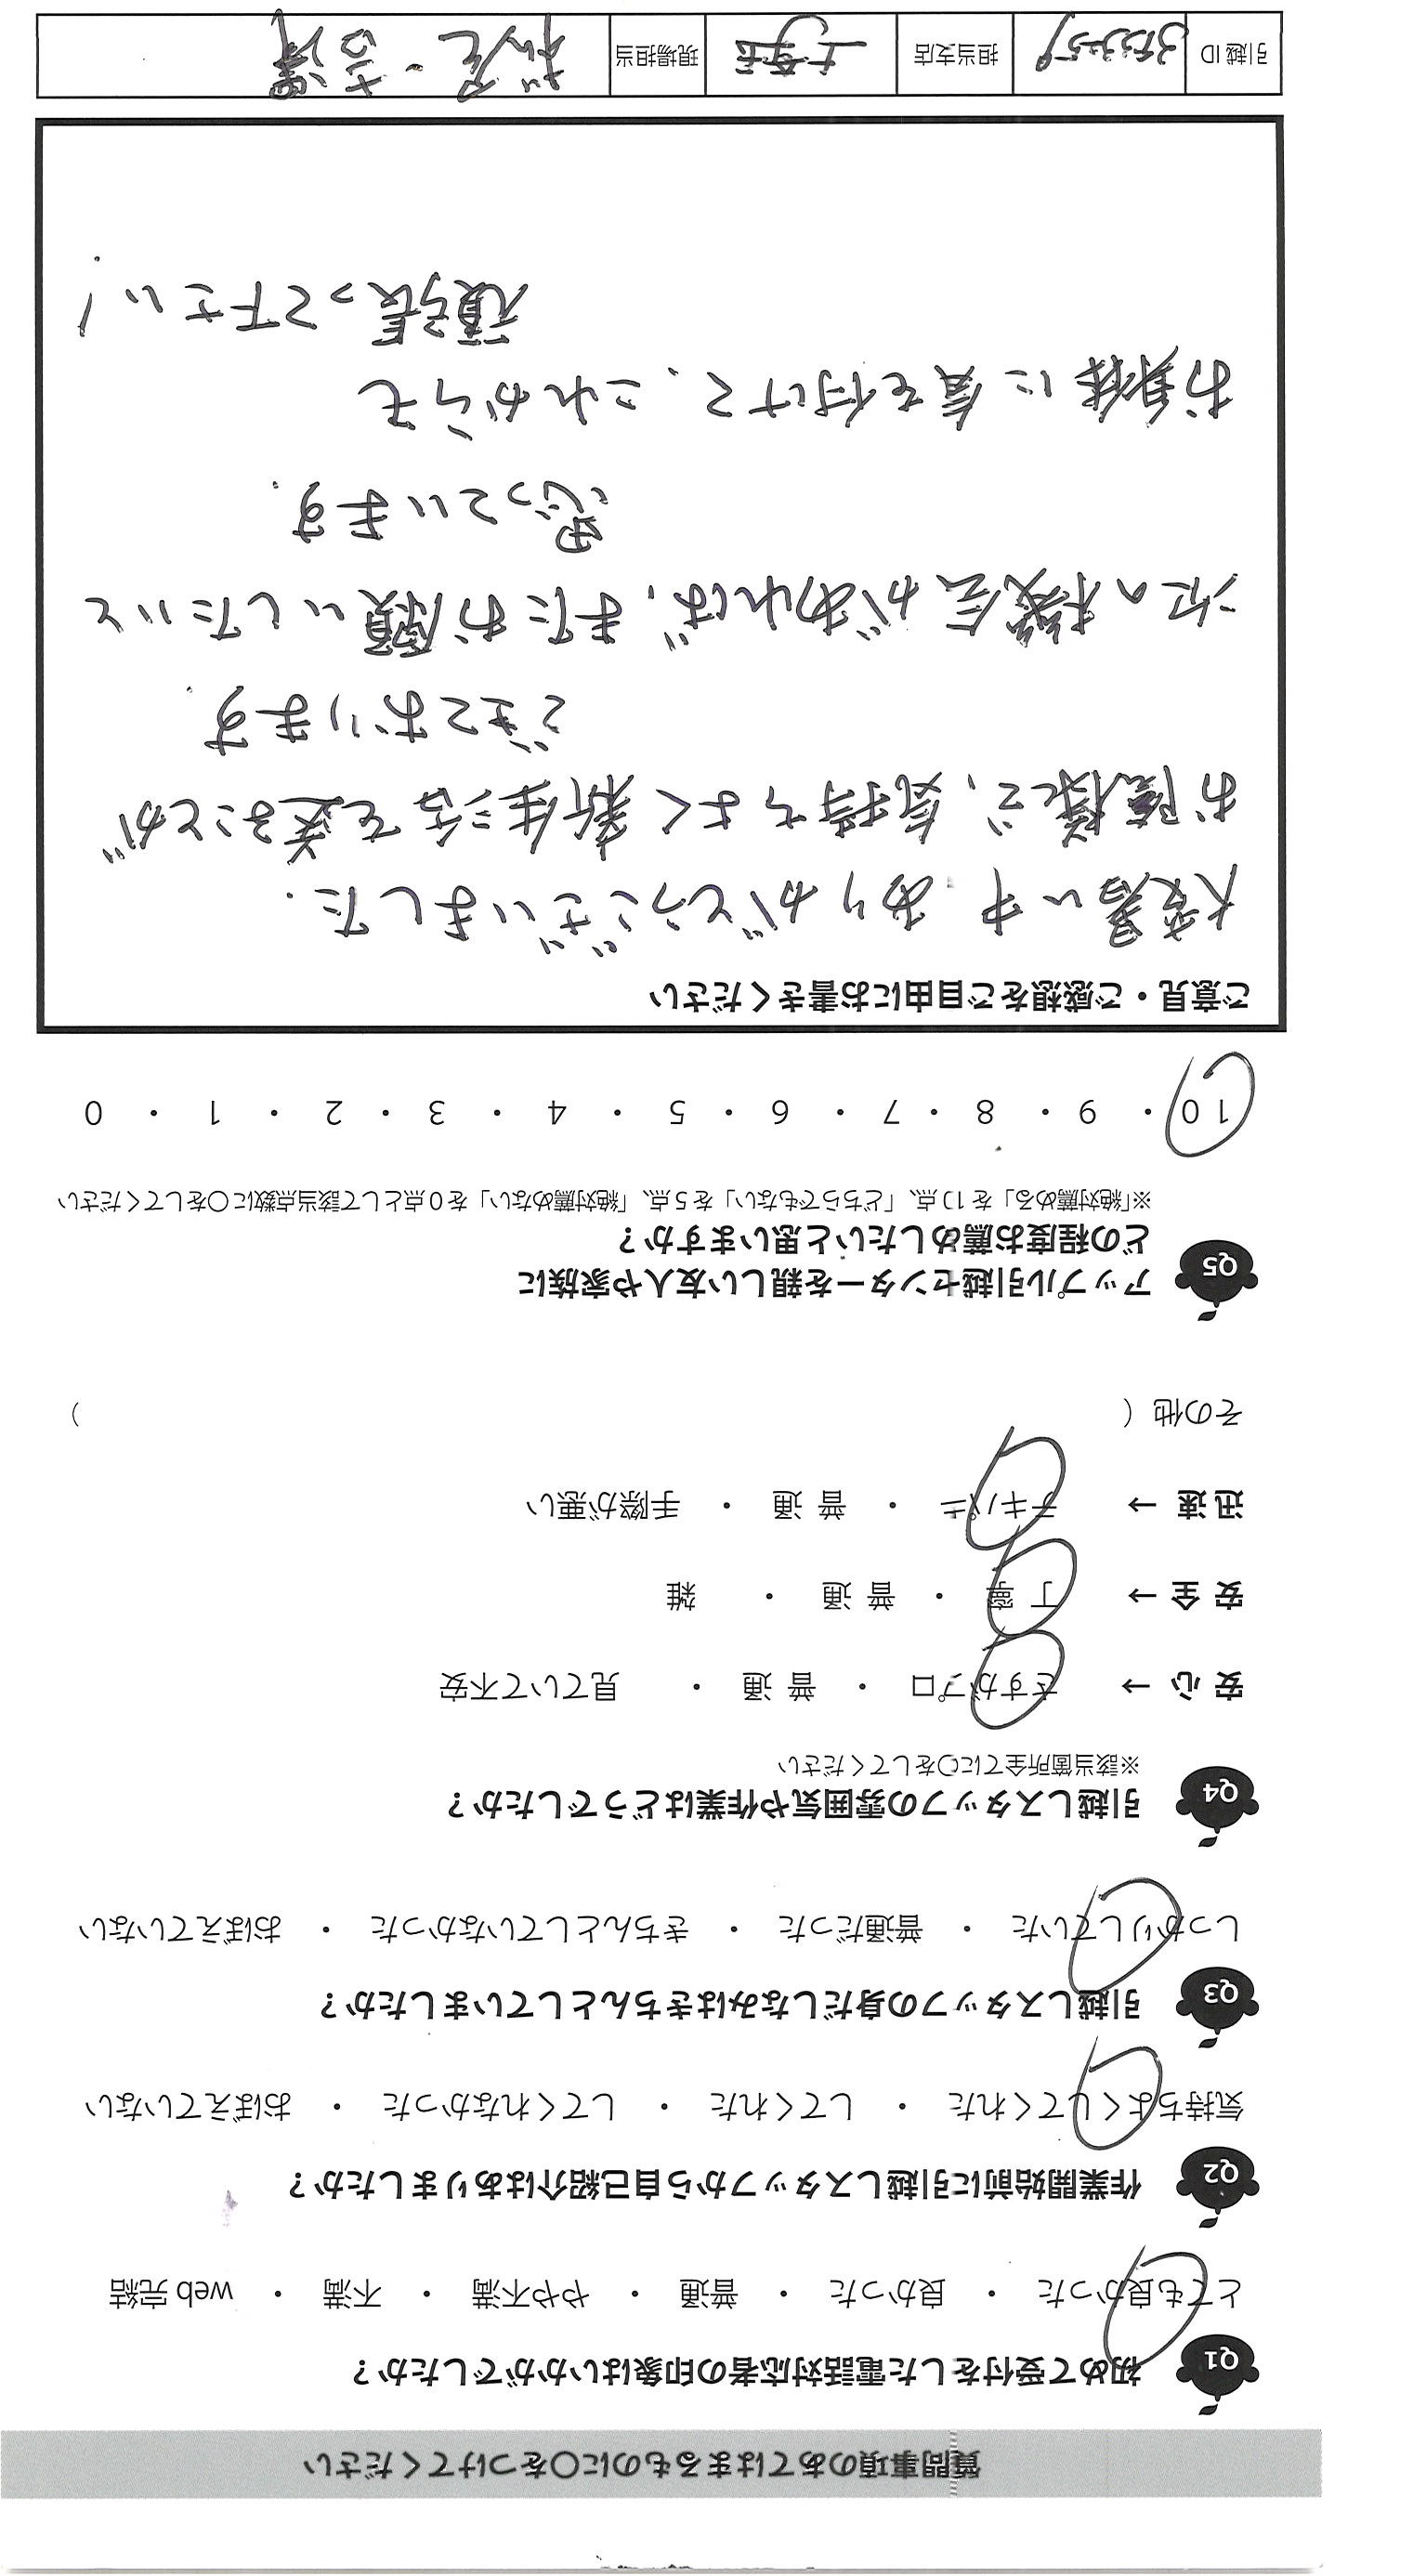 質問事項のあてはまるものに〇をつけてください
Q1 初めて受付をした電話対応者の印象はいかがでしたか？
とても良かった ・ 良かった ・ 普通 ・ やや不満 ・ 不満 ・ web 完結
Q2 作業開始前に引越しスタッフから自己紹介はありましたか？
気持ちよくしてくれた ・ してくれた ・ してくれなかった ・ おぼえていない
Q3 引越しスタッフの身だしなみはきちんとしていましたか？
しっかりしていた ・ 普通だった ・ きちんとしていなかった ・ おぼえていない
Q4 引越しスタッフの雰囲気や作業はどうでしたか？
※該当箇所全てに〇をしてください
安 心 → さすがプロ ・ 普 通 ・ 見ていて不安
安 全 → 丁 寧 ・ 普 通 ・ 雑
迅 速 → テキパキ ・ 普 通 ・ 手際が悪い
その他（ ）
Q5 アップル引越センターを親しい友人や家族に
どの程度お薦めしたいと思いますか？
※「絶対薦める」を 10点、「どちらでもない」を 5 点、「絶対薦めない」を 0 点として該当点数に〇をしてください
10 ・ 9 ・ 8 ・ 7 ・ 6 ・ 5 ・ 4 ・ 3 ・ 2 ・ 1 ・ 0
ご意見・ご感想をご自由にお書きください
大変暑い中、ありがとうございました.
お陰様で、気持ちよく新生活を送ることが
できております.
次の機会があれば、またお願いしたいと
思っています.
お身体に気を付けて、これからも
頑張って下さい！
引越 ID 担当支店 現場担当